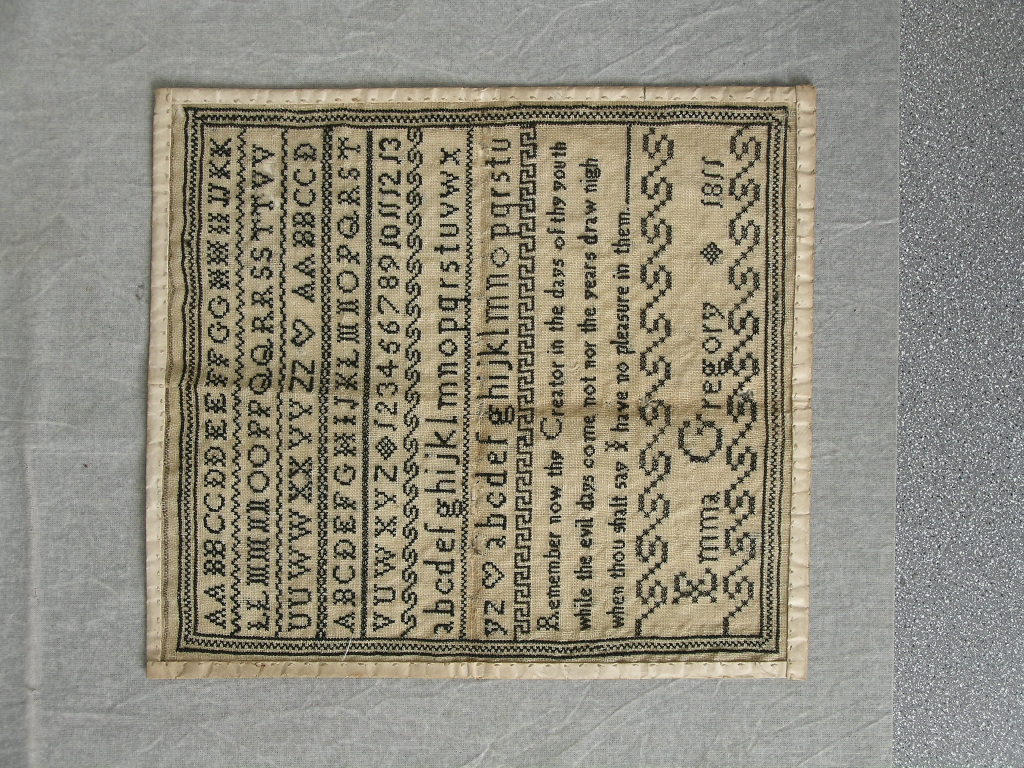 AABBCCDDEEFFGGHHIJKK
LLMMNNOOPPQQRRSSTTVV
UUWWXXYYZZ AABBCCD
ABCDEFGHIJKLMNOPQRST
VUWXYZ 12345678910111213
abcdefghijklmnopqrstuvwx
yz abcdefghijklmnopqrstu
Remember now thy Creator in the days of thy youth
while the evil days come not nor the years draw nigh
when thou shalt say I have no pleasure in them
Emma Gregory 1811